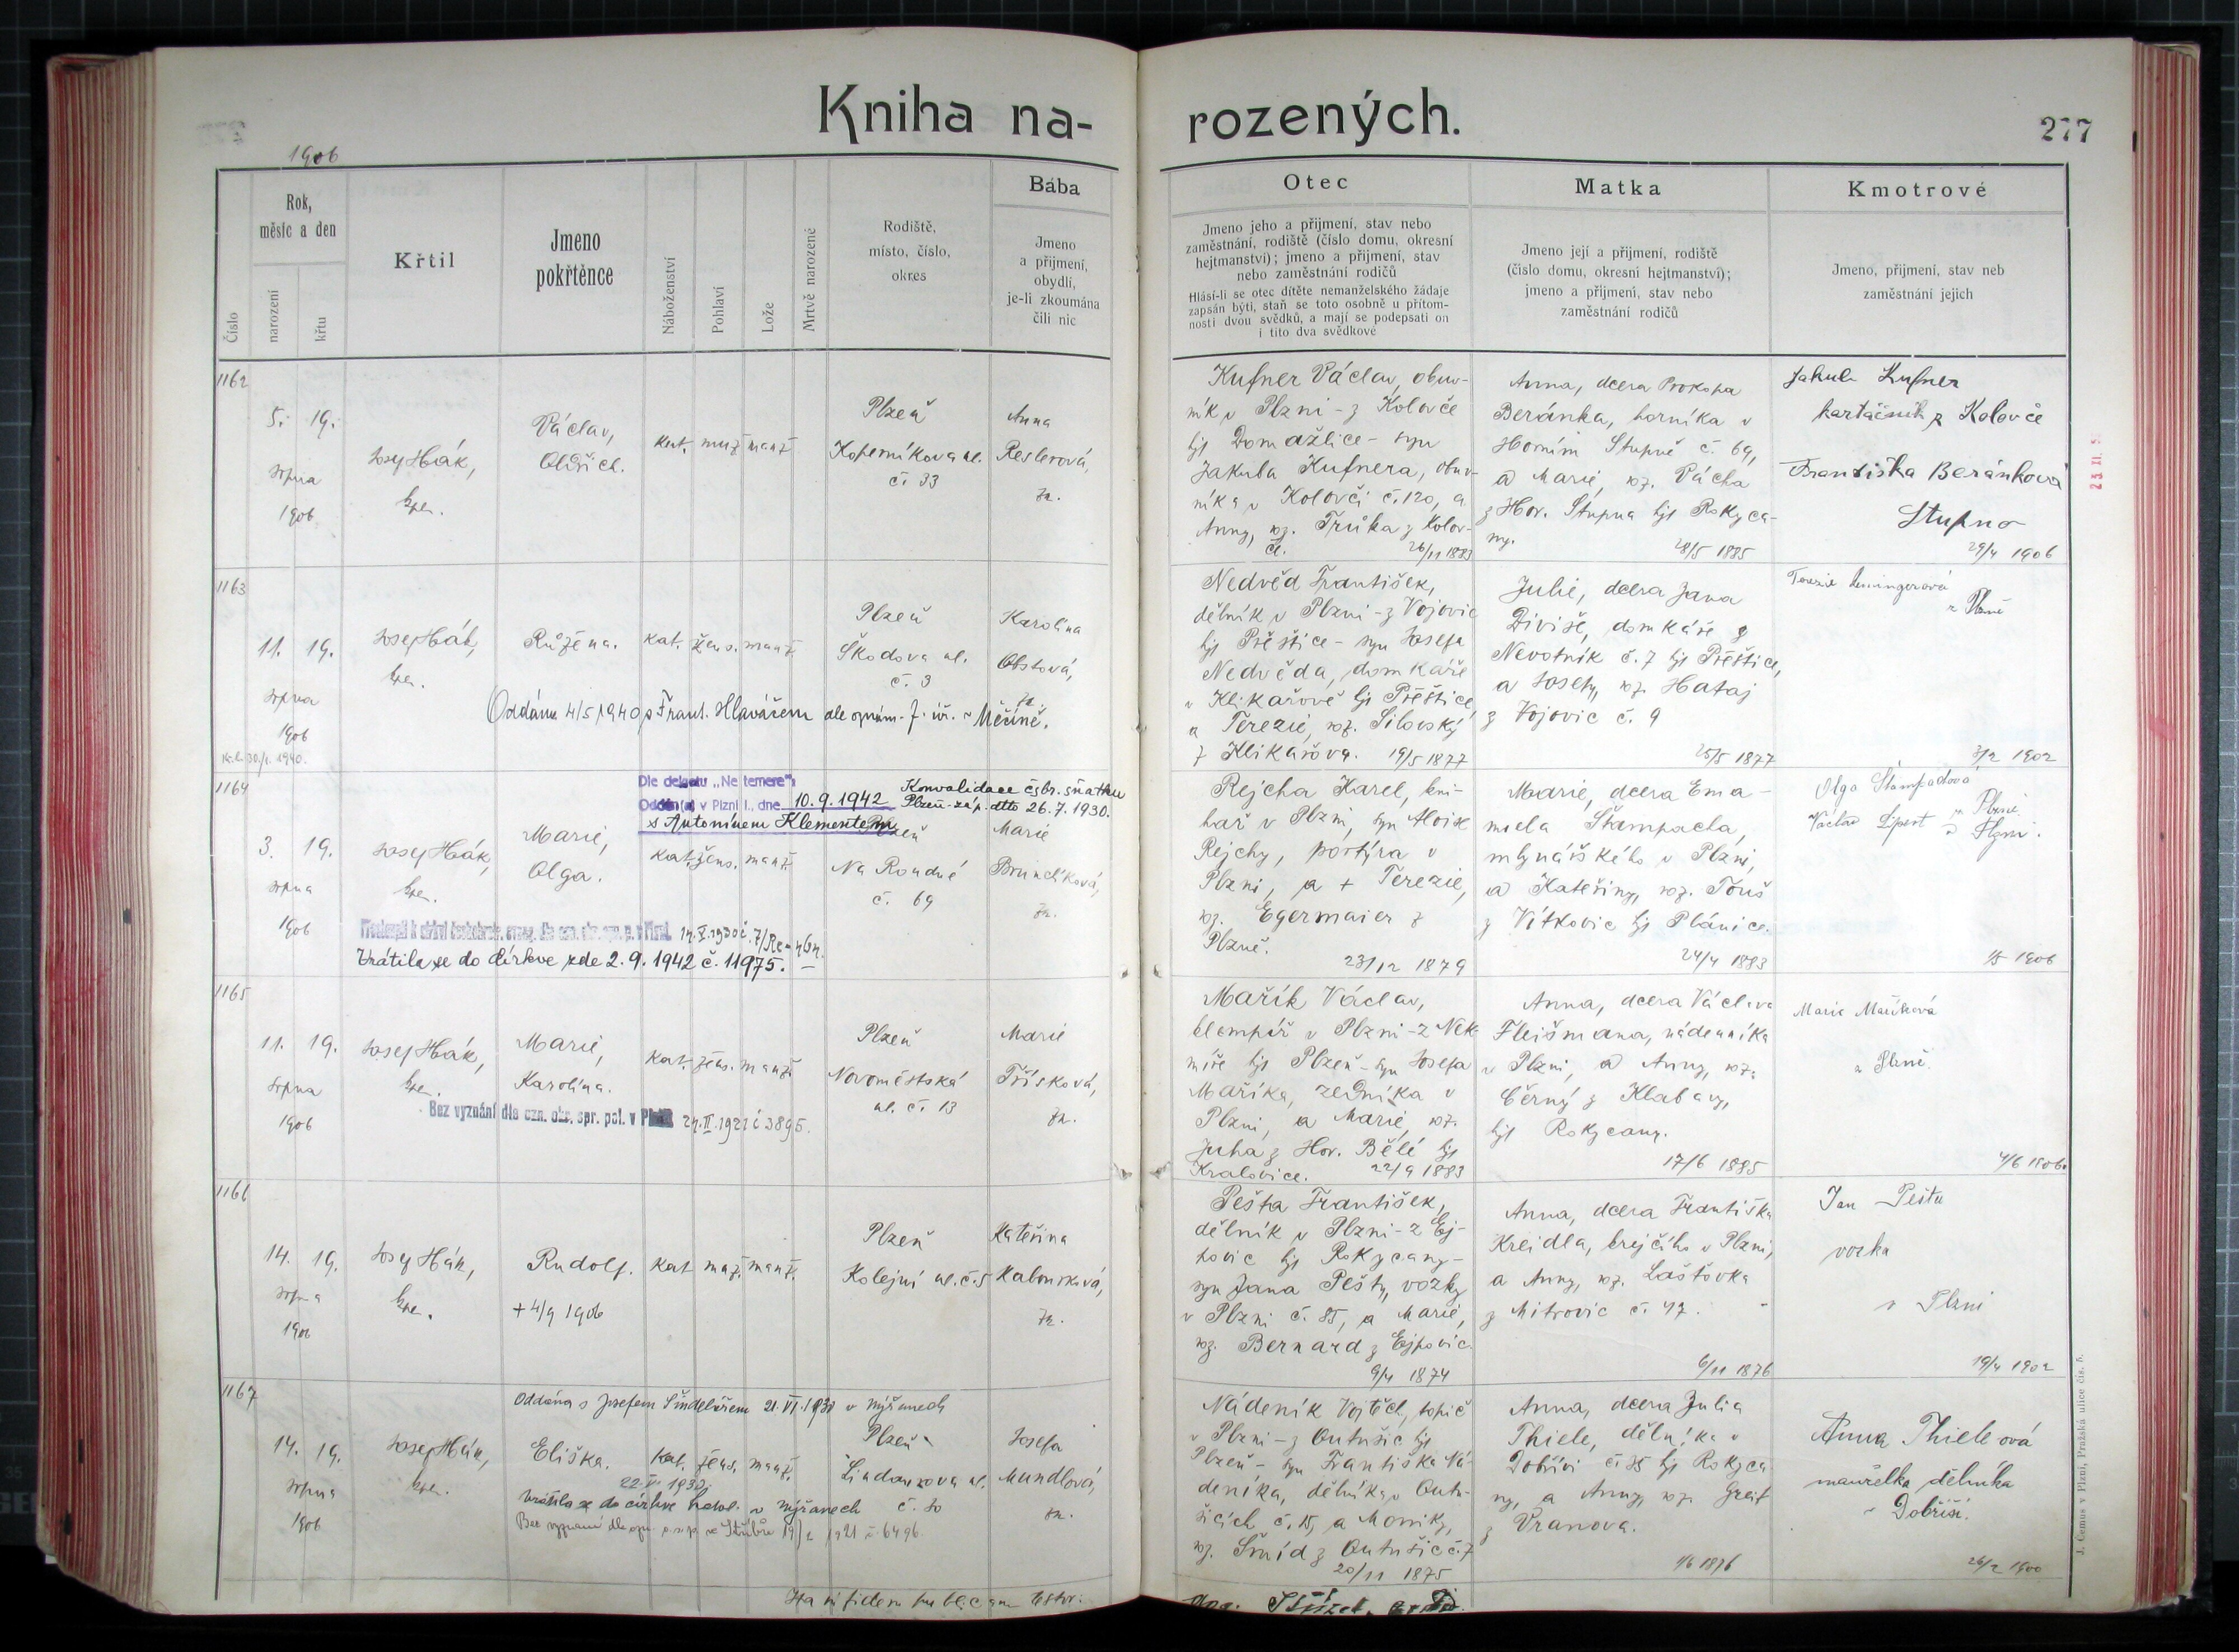 Kniha na-
rozených.
277
1906
Číslo
Rok,
měsíc a den
narození
křtu
Křtil
Jmeno
pokřtěnce
Náboženství
Pohlaví
Lože
Mrtvě narozené
Rodiště,
místo, číslo,
okres
Bába
Jmeno
a přijmení,
obydlí,
je-li zkoumána
čili nic
Otec
Jmeno jeho a přijmení, stav nebo
zaměstnání, rodiště (číslo domu, okresní
hejtmanství); jmeno a přijmení, stav
nebo zaměstnání rodičů
Hlásí-li se otec dítěte nemanželského žádaje
zapsán býti, staň se toto osobně u přítom-
nosti dvou svědků, a mají se podepsati on
i tito dva svědkové
Matka
Jmeno její a přijmení, rodiště
(číslo domu, okresní hejtmanství);
jmeno a přijmení, stav nebo
zaměstnání rodičů
Kmotrové
Jmeno, přijmení, stav neb
zaměstnání jejich
1162
5. 19.
srpna
1906
Josef Hák,
kpl.
Václav,
Oldřich.
kat. muž. manž.
Plzeň
Koperníkova ul.
č. 33
Anna
Reslerová,
zk.
Kufner Václav, obuv-
ník v Plzni - z Kolovče
hjt Domažlice - syn
Jakuba Kufnera, obuv-
níka v Kolovči č. 120, a
Anny, roz. Trůka z Kolov-
če. 26/11 1883
Anna, dcera Prokopa
Beránka, horníka v
Horním Stupně č. 69,
a Marie, roz. Pácha
z Hor. Stupna hjt Rokyca-
ny.
28/5 1885
Jakub Kufner
kartáčník z Kolovče
Františka Beránková
Stupno
29/4 1906
1163
11. 19.
srpna
1906
Josef Hák,
kpl.
Růžena.
kat. žens. manž.
Plzeň
Škodova ul.
č. 3
Karolína
Obstová,
zk.
Oddána 4/5 1940 s Frant. Hlaváčem dle oznám. f. úř. v Měčíně.
Nedvěd František,
dělník v Plzni - z Vojovic
hjt Přeštice - syn Josefa
Nedvěda, domkáře
v Klikařově hjt Přeštice,
a Terezie, roz. Silovský
z Klikařova. 19/5 1877
Julie, dcera Jana
Diviše, domkáře z
Nevotník č. 7 hjt Přeštice,
a Josefy, roz. Hataj
z Vojovic č. 9
25/5 1877
Terezie
z Plzně
3/2 1902
1164
3. 19.
srpna
1906
Josef Hák,
kpl.
Marie,
Olga.
Dle dekretu „Ne temere“:
Oddán(a) v Plzni I., dne 10.9.1942
s Antonínem Klementem
Konvalidace čsbr. sňatku
Plzeň-záp. dtto 26.7.1930.
kat. žens. manž.
Plzeň
Na Roudné
č. 69
Marie
Brunclíková,
zk.
Vrátila se do církve zde 2.9.1942 č. 11975. —
Rejcha Karel, kni-
hař v Plzni, syn Aloise
Rejchy, portýra v
Plzni, a + Terezie,
roz. Egermaier z
Plzně.
23/12 1879
Marie, dcera Ema-
nuela Štampacha,
mlynářského v Plzni,
a Kateřiny, roz. Touš
z Vítkovic hjt Plánice.
24/4 1883
Olga Štampachová
z Plzně
Václav Lipert z Plzni.
1/5 1906
1165
11. 19.
srpna
1906
Josef Hák,
kpl.
Marie,
Karolína.
kat. žens. manž.
Plzeň
Novoměstská
ul. č. 13
Marie
Třísková,
zk.
Bez vyznání dle ozn. okr. spr. pol. v Plzni 24.II.1921 č 3895.
Mařík Václav,
klempíř v Plzni - z Nek-
míře hjt Plzeň - syn Josefa
Maříka, zedníka v
Plzni, a Marie, roz.
Juha z Hor. Bělé hjt
Kralovice. 22/9 1883
Anna, dcera Václava
Fleišmana, nádenníka
v Plzni, a Anny, roz.
Černý z Klabavy,
hjt Rokycany.
17/6 1885
Marie Maříková
z Plzně.
4/6 1906
1166
14. 19.
srpna
1906
Josef Hák,
kpl.
Rudolf.
+ 4/9 1906
kat. muž. manž.
Plzeň
Kolejní ul. č. 5
Kateřina
Kabourková,
zk.
Pešta František,
dělník v Plzni - z Ej-
povic hjt Rokycany -
syn Jana Pešty, vozky
v Plzni č. 85, a Marie,
roz. Bernard z Ejpovic.
9/4 1874
Anna, dcera Františka
Kreidla, krejčího v Plzni,
a Anny, roz. Laštovka
z Mitrovic č. 47.
6/11 1876
Jan Pešta
vozka
v Plzni
19/4 1902
1167
14. 19.
srpna
1906
Josef Hák,
kpl.
Oddána s Josefem Šindelářem 21.VI.1930 v Nýřanech
Eliška.
kat. žens. manž.
Plzeň
Lindauerova ul.
Josefa
Mundlová,
zk.
Vrátila se do církve katol. v Nýřanech
Nádeník Vojtěch, topič
v Plzni - z Outušic hjt
Plzeň - syn Františka Ná-
deníka, dělníka v Outu-
šicích č. 15, a Moniky,
roz. Šmíd z Outušic č. 7
20/11 1875
Anna, dcera Julia
Thiele, dělníka v
Dobřívi č. 35 hjt Rokyca-
ny, a Anny, roz. Greif
z Vranova.
1/6 1876
Anna Thieleová
manželka dělníka
26/2 1900
J. Čemus v Plzni, Pražská ulice čís. 8.